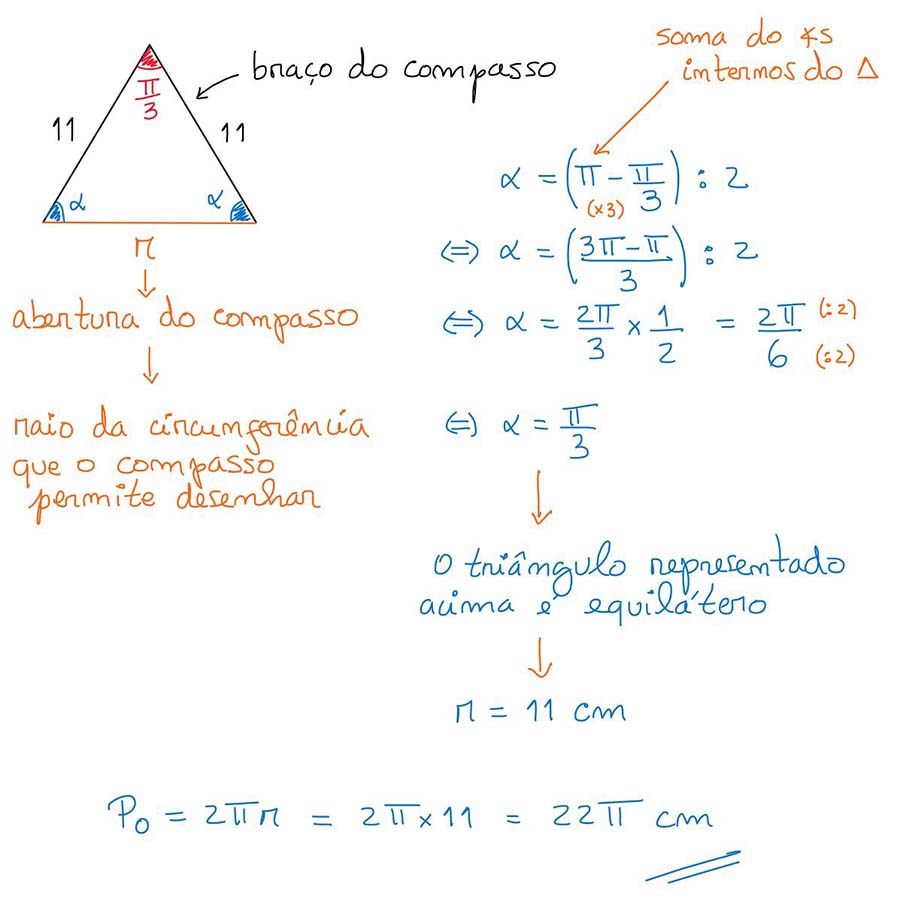 π/3
braço do compasso
11
11
α
α
r
abertura do compasso
raio da circunferência
que o compasso
permite desenhar
soma do ∢s
internos do Δ
α = (π - π/3) : 2
(×3)
⇔ α = ((3π - π)/3) : 2
⇔ α = 2π/3 × 1/2 = 2π/6 (:2) (:2)
⇔ α = π/3
O triângulo representado
acima é equilátero
r = 11 cm
P₀ = 2πr = 2π×11 = 22π cm